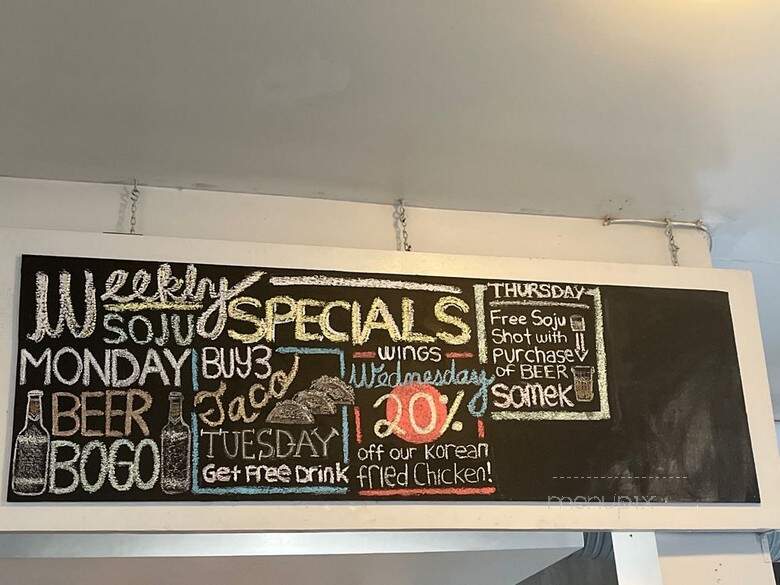 Weekly
SPECIALS
SOJU
MONDAY
BEER
BOGO
BUY 3
Taco
TUESDAY
Get Free Drink
WINGS
Wednesday
20%
off our Korean
fried Chicken!
THURSDAY
Free Soju
Shot with
Purchase
of BEER
Somek
menupix